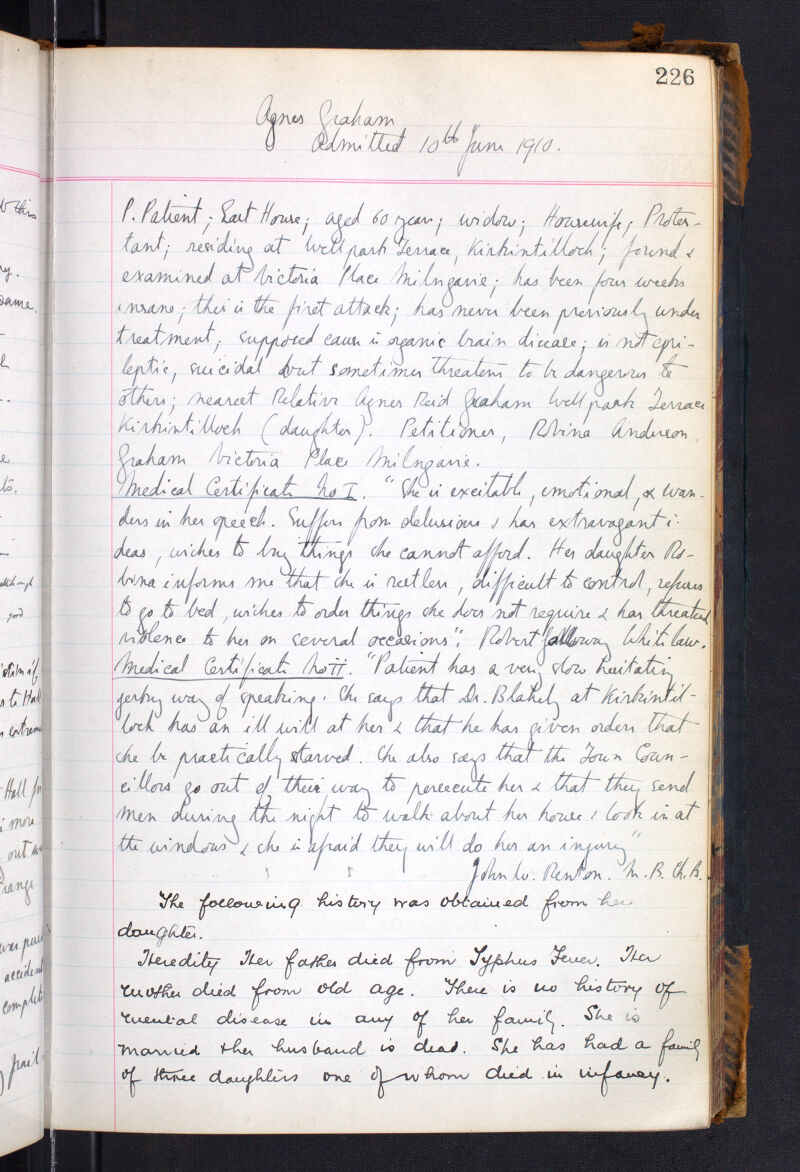 226
Agnes Graham
Admitted 10th June 1910.
P. Patient; East House; aged 60 years; widow; Housewife; Protes-
tant; residing at Wellpark Terrace, Kirkintilloch; found &
examined at Victoria Place Milngavie; has been four weeks
insane; this is the first attack; has never been previously under
treatment; supposed cause is organic brain disease; is not epi-
leptic, suicidal but sometimes threatens to be dangerous to
others; nearest Relative Agnes Reid Graham Wellpark Terrace
Kirkintilloch (daughter). Petitioner, Robina Anderson
Graham Victoria Place Milngavie.
Medical Certificate No I. "She is excitable, emotional, & wan-
ders in her speech. Suffers from delusions & has extravagant i-
deas, wishes to buy things she cannot afford. Her daughter Ro-
bina informs me that she is restless, difficult to control, refuses
to go to bed, wishes to order things she does not require & has threatened
violence to her on several occasions"; Robert Galloway Whitelaw.
Medical Certificate No II. "Patient has a very slow hesitating
jerky way of speaking. She says that Dr. Blakely at Kirkintil-
loch has an ill will at her & that he has given orders that
she be practically starved. She also says that the Town Coun-
cillors go out of their way to persecute her & that they send
men during the night to walk about her house & look in at
the windows & she is afraid they will do her an injury"
John W. Renton. M.B. Ch.B.
The following history was obtained from her
daughter.
Heredity Her father died from Typhus Fever. Her
mother died from old age. There is no history of
mental disease in any of her family. She is
married & her husband is dead. She has had a family
of three daughters one of whom died in infancy.